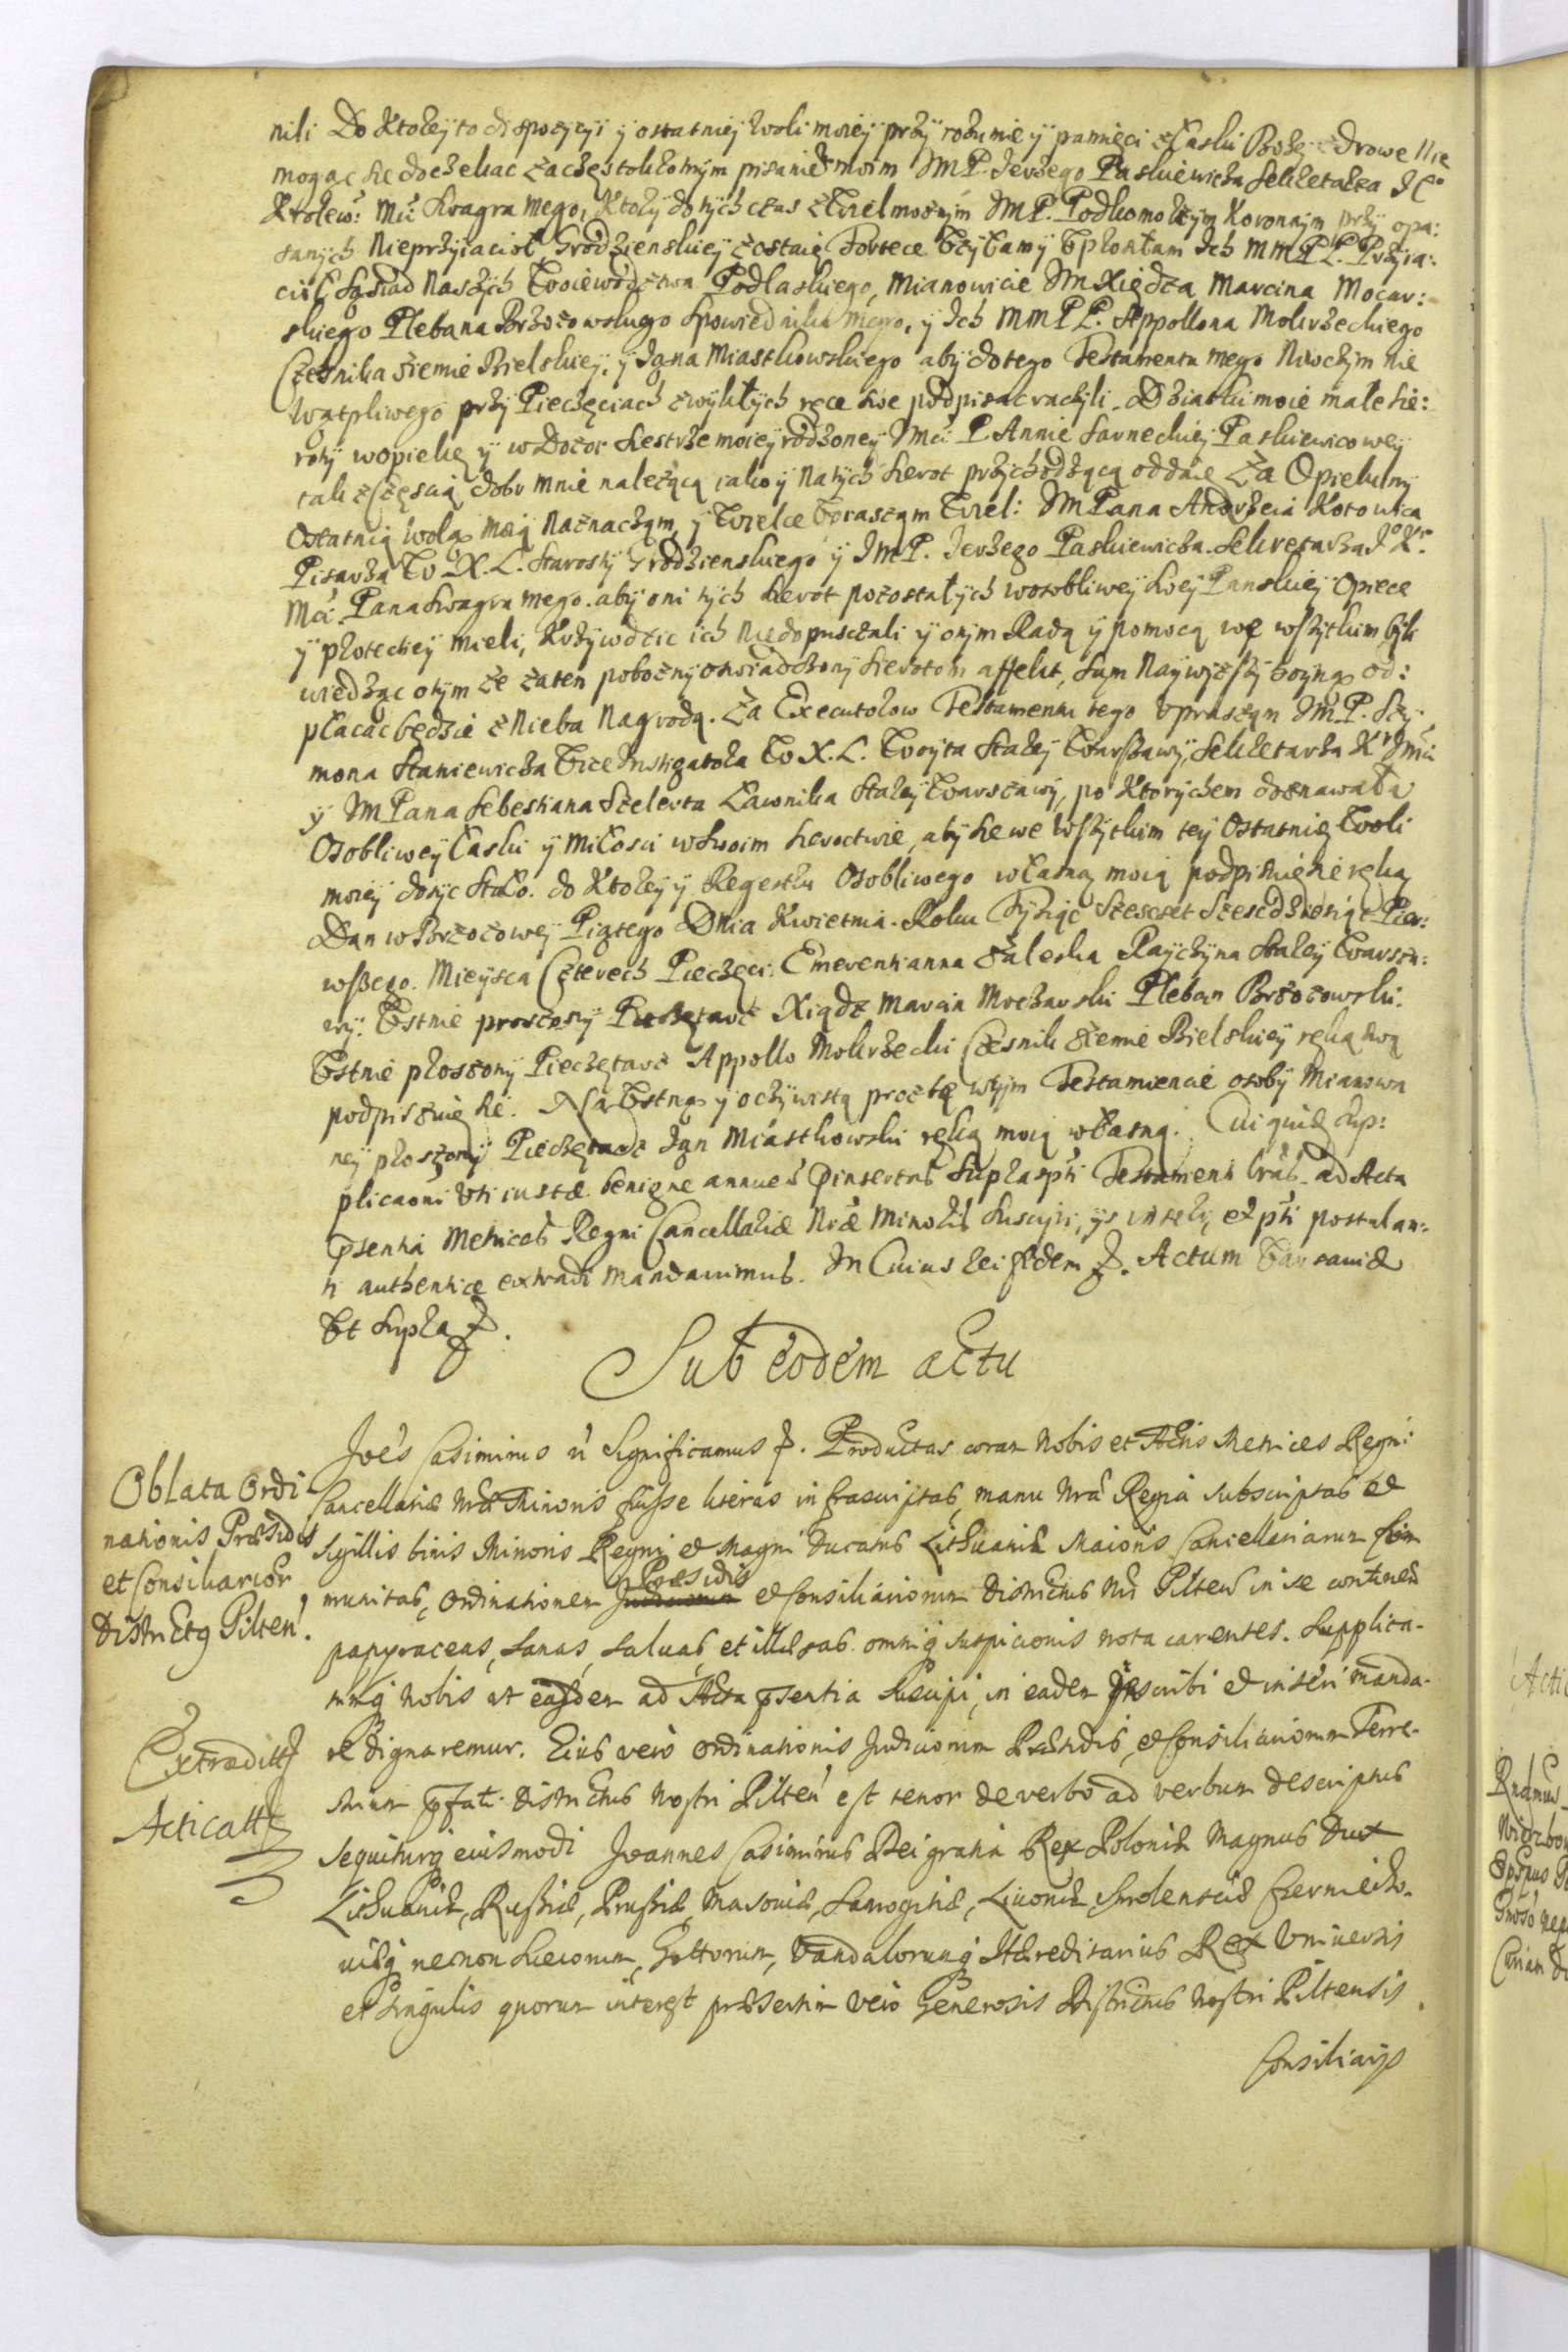 nili Do Ktorey to dispozycyi y ostatniey woli moiey przy rozumie y pamięci z Łaski Bożey zdrowe Nie
mogąc się doczekac za częstokrotnym pisaniem moim JM P. Jerzego Paskiewicza Sekretarza J Co
Krolew: Mci Szwagra mego, Ktory do tych czas z Wielmożnym JM P. Podkomorzym Koronnym przy opa:
sanych Nieprzyiacioł Grodzienskiey zostaie Fortece Uzyłamy Uprosiłam Ich MM PP. Przyia:
cioł Sąsiad Naszych Woiewodztwa Podlaskiego, Mianowicie JM Xiędza Marcina Moczar:
skiego Plebana Brzozowskiego Spowiednika mego, y Ich MM PP. Appollona Mokrzeckiego
Czesnika Ziemie Bielskiey, y Jana Miastkowskiego aby do tego Testamentu mego Niwczym nie
wątpliwego przy Pieczęciach zwykłych ręce swe podpisac raczyli. Dziatki moie małe sie:
roty w opiekę y w Dozor Siestrze moiey rodzoney Mci P Annie Sarneckiey Paskiewicowey
tak z częscią dobr mnie należącą iako y na tych sierot przychodzącą oddaię Za Opiekuny
Ostatnią wolą moią Naznaczam, y Wielce Upraszam Wiel: JM Pana Andrzeia Kotowica
Pisarza W X. L. Starosty Grodzienskiego y JM P. Jerzego Paskiewicza Sekretarza Jo Kr.
Mci. Pana Szwagra mego. aby oni tych sierot pozostałych w osobliwey swey Panskiey Opiece
y protekcyey mieli, Krzywdzic ich Niedopuszczali y onym Radą y pomocą we wszytkim byli
wiedząc o tym ze za ten pobożny oswiadczony Sierotom affekt, Sam Naywyższy Boyną od:
płacac będzie z Nieba Nagrodą. Za Executorow Testamentu tego Upraszam JM P. Szy
mona Staniewicza Vice Instigatora W X. L. Woyta Starey Warszawy, Sekretarza Kr Jmci
y JM Pana Sebestiana Szelerta Ławnika Starey Warszawy, po Ktorychem doznawała
Osobliwey Łaski y Miłosci w swoim sieroctwie, aby się we wszytkim tey Ostatniey Woli
moiey dosyc Stało. do Ktorey y Regestru Osobliwego własną moią podpisuię się ręką
Dan w Brzozowey Piątego Dnia Kwietnia. Roku Tysiąc Szescset Szescdziesiąt Pier:
wszego. Mieysca Czterech Pieczęci. Emerentianna Zaleska Rayczyna Starey Warsza:
wy: Ustnie proszony Pieczętarz Xiądz Marcin Moczarski Pleban Brzozowski.
Ustnie proszony Pieczętarz Appollo Mokrzecki Czesnik Ziemie Bielskiey ręką swą
podpisuię się. Na Ustną y oczywistą prozbę w tym Testamencie osoby Mianowa
ney proszony Pieczętarz Jan Miastkowski ręką moią własną. Cui quidem Sup:
plicaoni Uti iustæ benigne annuen pinsertas supra spti Testamenti lras ad Acta
psentia Metrices Regni Cancellariæ Nræ Minoris Suscipi, ijs inseri, et pti postulan:
ti authentice extradi mandavimus. In Cuius rei fidem. Actum Varsaviæ
Ut supra.
Sub eodem actu
Oblata Ordi
nationis Præsidis
et Consiliarior
Districtus Pilten.
Extraditt
Acticatt
Joes Casimirus Significamus. Productas coram Nobis et Actis Metrices Regni
Cancellariæ Nræ Minoris fuisse literas infrascriptas, manu Nra Regia subscriptas et
sigillis binis Minoris Regni et Magni Ducatus Lithuaniæ Maioris Cancellariarum com
munitas, Ordinationem Præsidis et Consiliariorum Districtus Nri Pilten in se continen
papyraceas, sanas, saluas, et illæsas omniq suspicionis nota carentes. Supplica-
tumq nobis ut easdem ad Acta psentia Suscipi, in eadem inscribi et inseri manda-
re dignaremur. Eius vero Ordinationis Judiciorum Præsidis, et Consiliariorum Terre-
strium pfati Districtus Nostri Pilten est tenor de verbo ad verbum descriptus
sequiturq eiusmodi Joannes Casimirus Dei gratia Rex Poloniæ Magnus Dux
Lithuaniæ, Russiæ, Prussiæ, Masoviæ, Samogitiæ, Livoniæ, Smolensciæ Czerniecho-
viæq necnon Suecorum, Gottorum, Vandalorumq Hæreditarius Rex Universis
et singulis quorum interest præsertim vero Generosis Districtus Nostri Piltensis
Consiliarijs